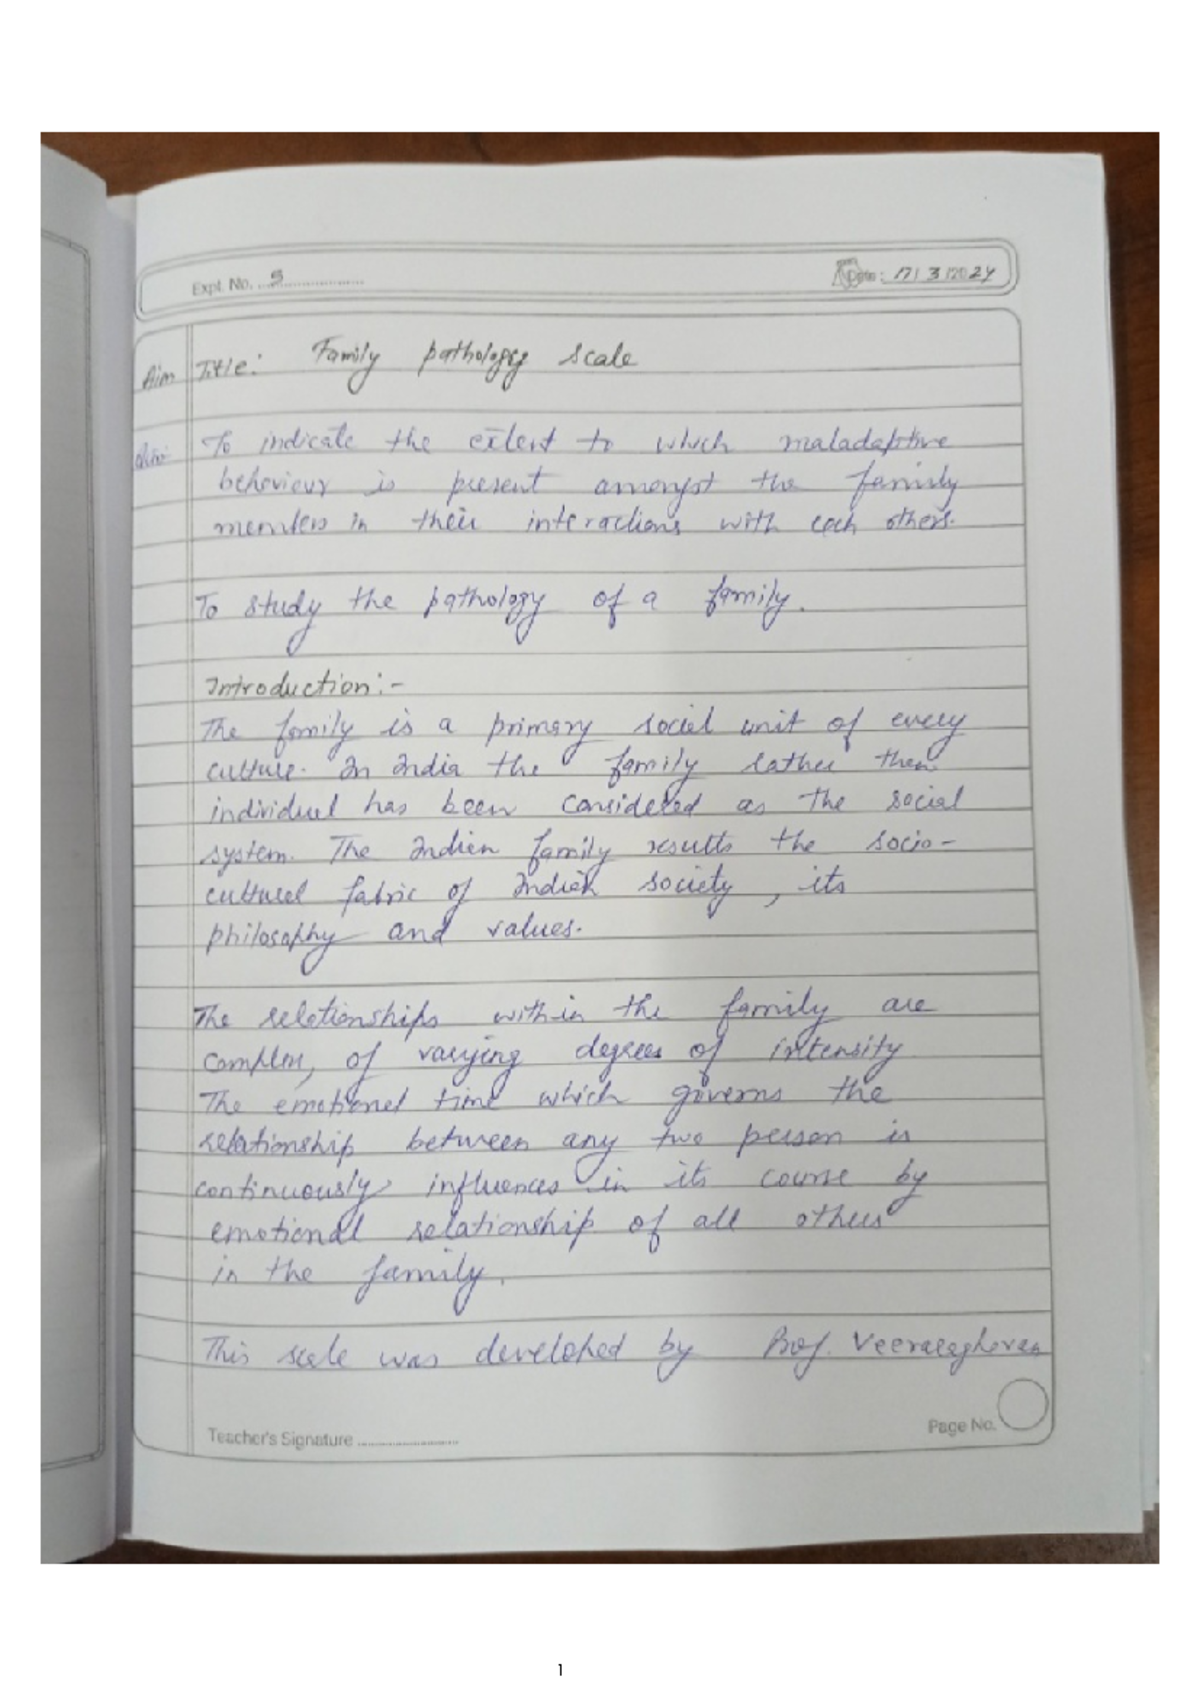 Expt. No. 5
Date: 17/3/2024
Aim Title: Family pathology scale
Aim: To indicate the extent to which maladaptive
behaviour is present amongst the family
members in their interactions with each others.
To study the pathology of a family.
Introduction:-
The family is a primary social unit of every
culture. In India the family rather then
individual has been considered as the social
system. The Indian family results the socio-
cultural fabric of Indian society, its
philosophy and values.
The relationships within the family are
complex, of varying degrees of intensity
The emotional time which governs the
relationship between any two person is
continuously influences in its course by
emotional relationship of all others
in the family.
This scale was developed by Prof. Veeraraghavan
Teacher's Signature
Page No.
1